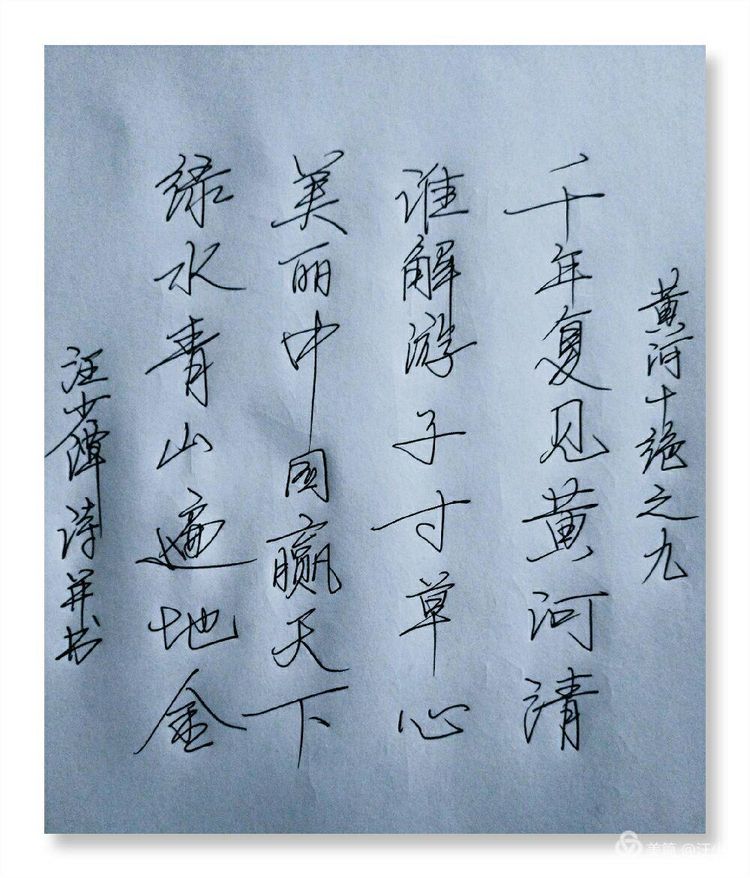 黄河十绝之九
千年复见黄河清
谁解游子寸草心
美丽中国赢天下
绿水青山遍地金
汪少[?]诗并书
美篇 @汪